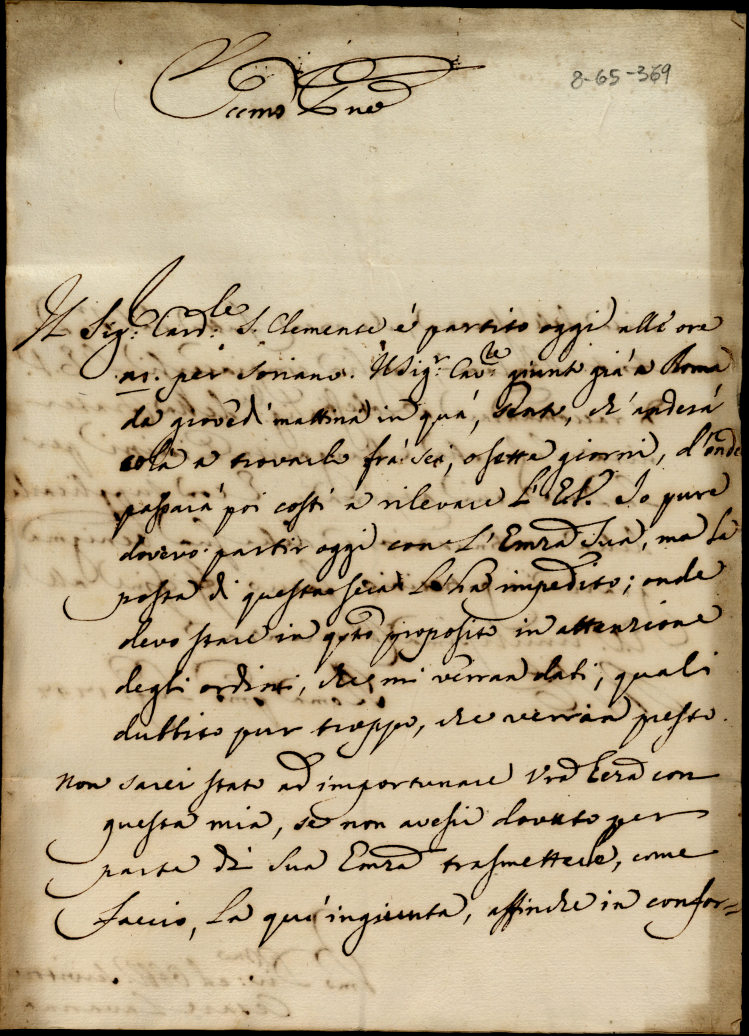 8-65-369
Eccmo Pne
Il Sig.r Card.le S. Clemente è partito oggi alle ore
21. per Soriano. Il Sig.r Cav.re giunto già a Roma
da giovedì mattina in quà, sente, ch'anderà
colà a trovarlo frà sei, o sette giorni, d'onde
passarà poi costì a rilevare l'E.V. Io pure
dovevo partir oggi con l'Emza Sua, ma la
posta di questa sera l'hà impedito; onde
devo stare in qsto proposito in attenzione
degli ordini, che mi verran dati, quali
dubbito pur troppo, che verràn presto.
Non sarei stato ad importunare Vrã Ecczã con
questa mia, se non avessi dovuto per
parte di Sua Emza trasmetterle, come
faccio, la quì ingiunta, affinche in confor=